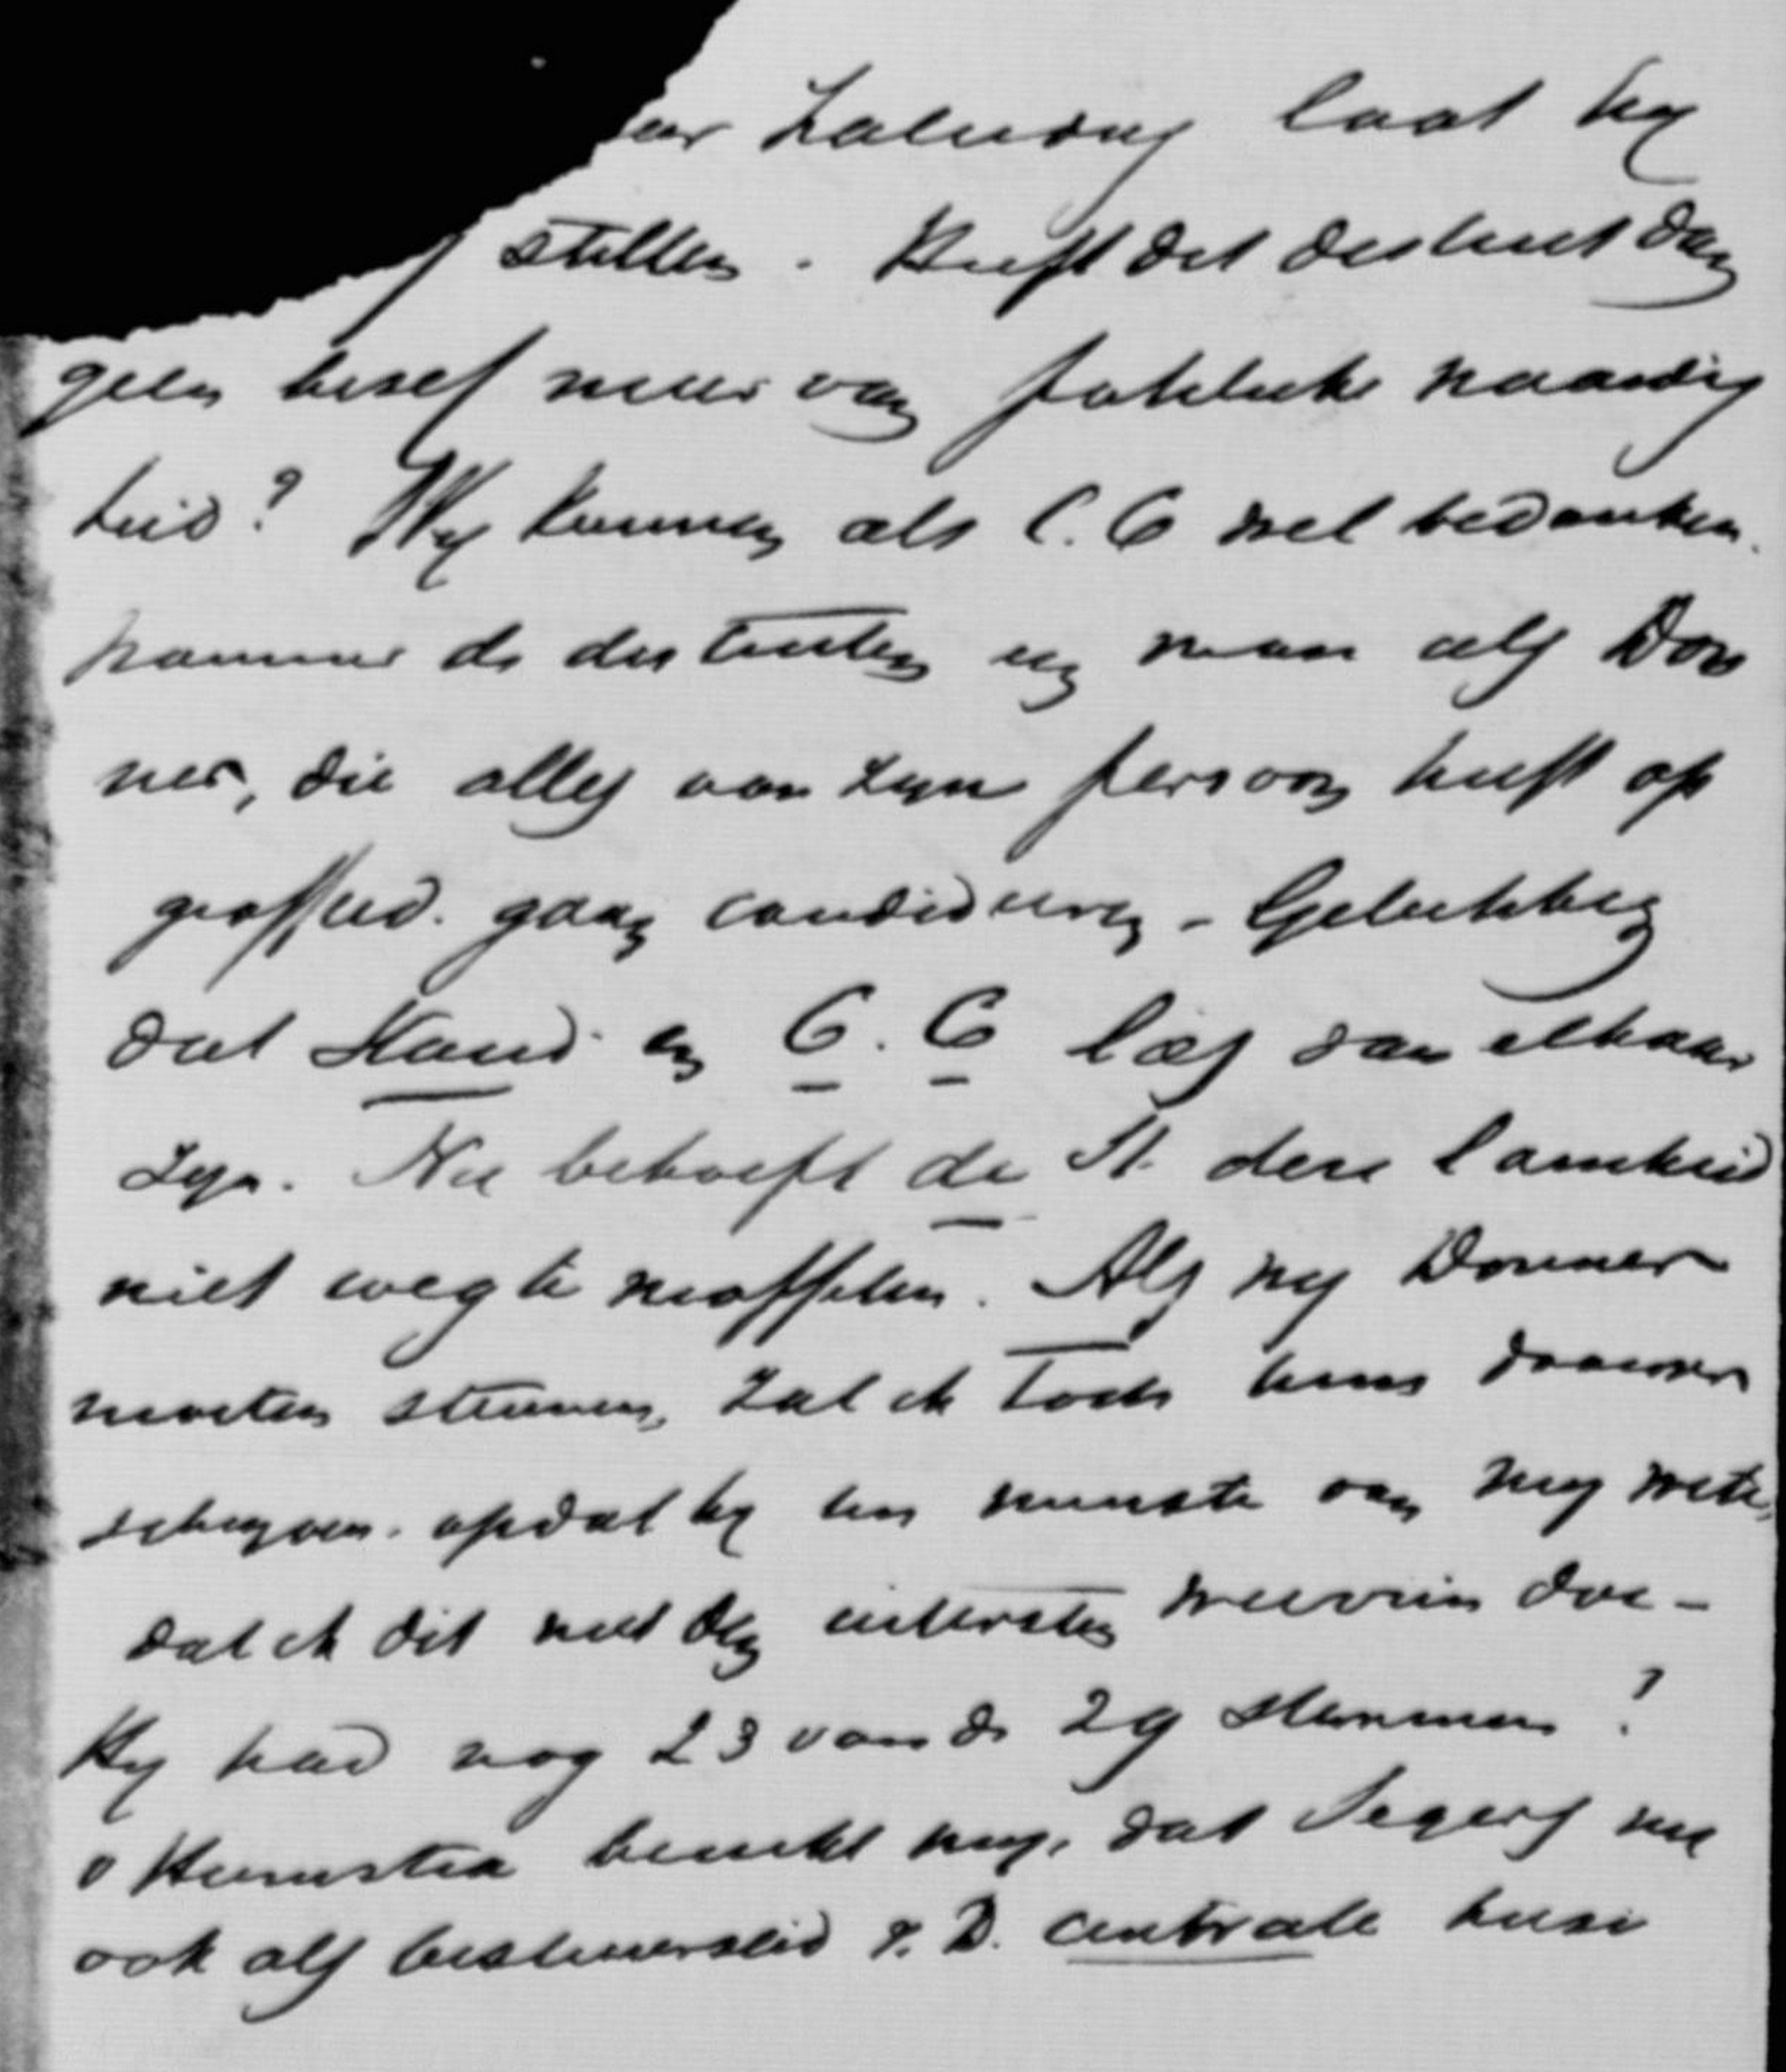 Zaterdag laat hy
stellen. Heeft dat district dan
geen besef meer van politieke waardig
heid? Wy kunnen als C.C wel bedanken
wanneer de districten een man als Don
ner, die alles aan zyn persoon heeft op
geofferd. gaan candideeren - Gelukkig
dat Stand. en C.C los van elkaar
zyn. Nu behoeft de St. deze lamheid
niet weg te moffelen. Als wy Donner
moeten steunen, zal ik toch hem daarover
schryven. opdat hy ten minste van my wete,
dat ik dit met den uitersten weerzin doe -
Hy had nog 23 van de 29 stemmen?
v Heemstra bericht my, dat Segers nu
ook als bestuurslid v. D. Centrale heeft